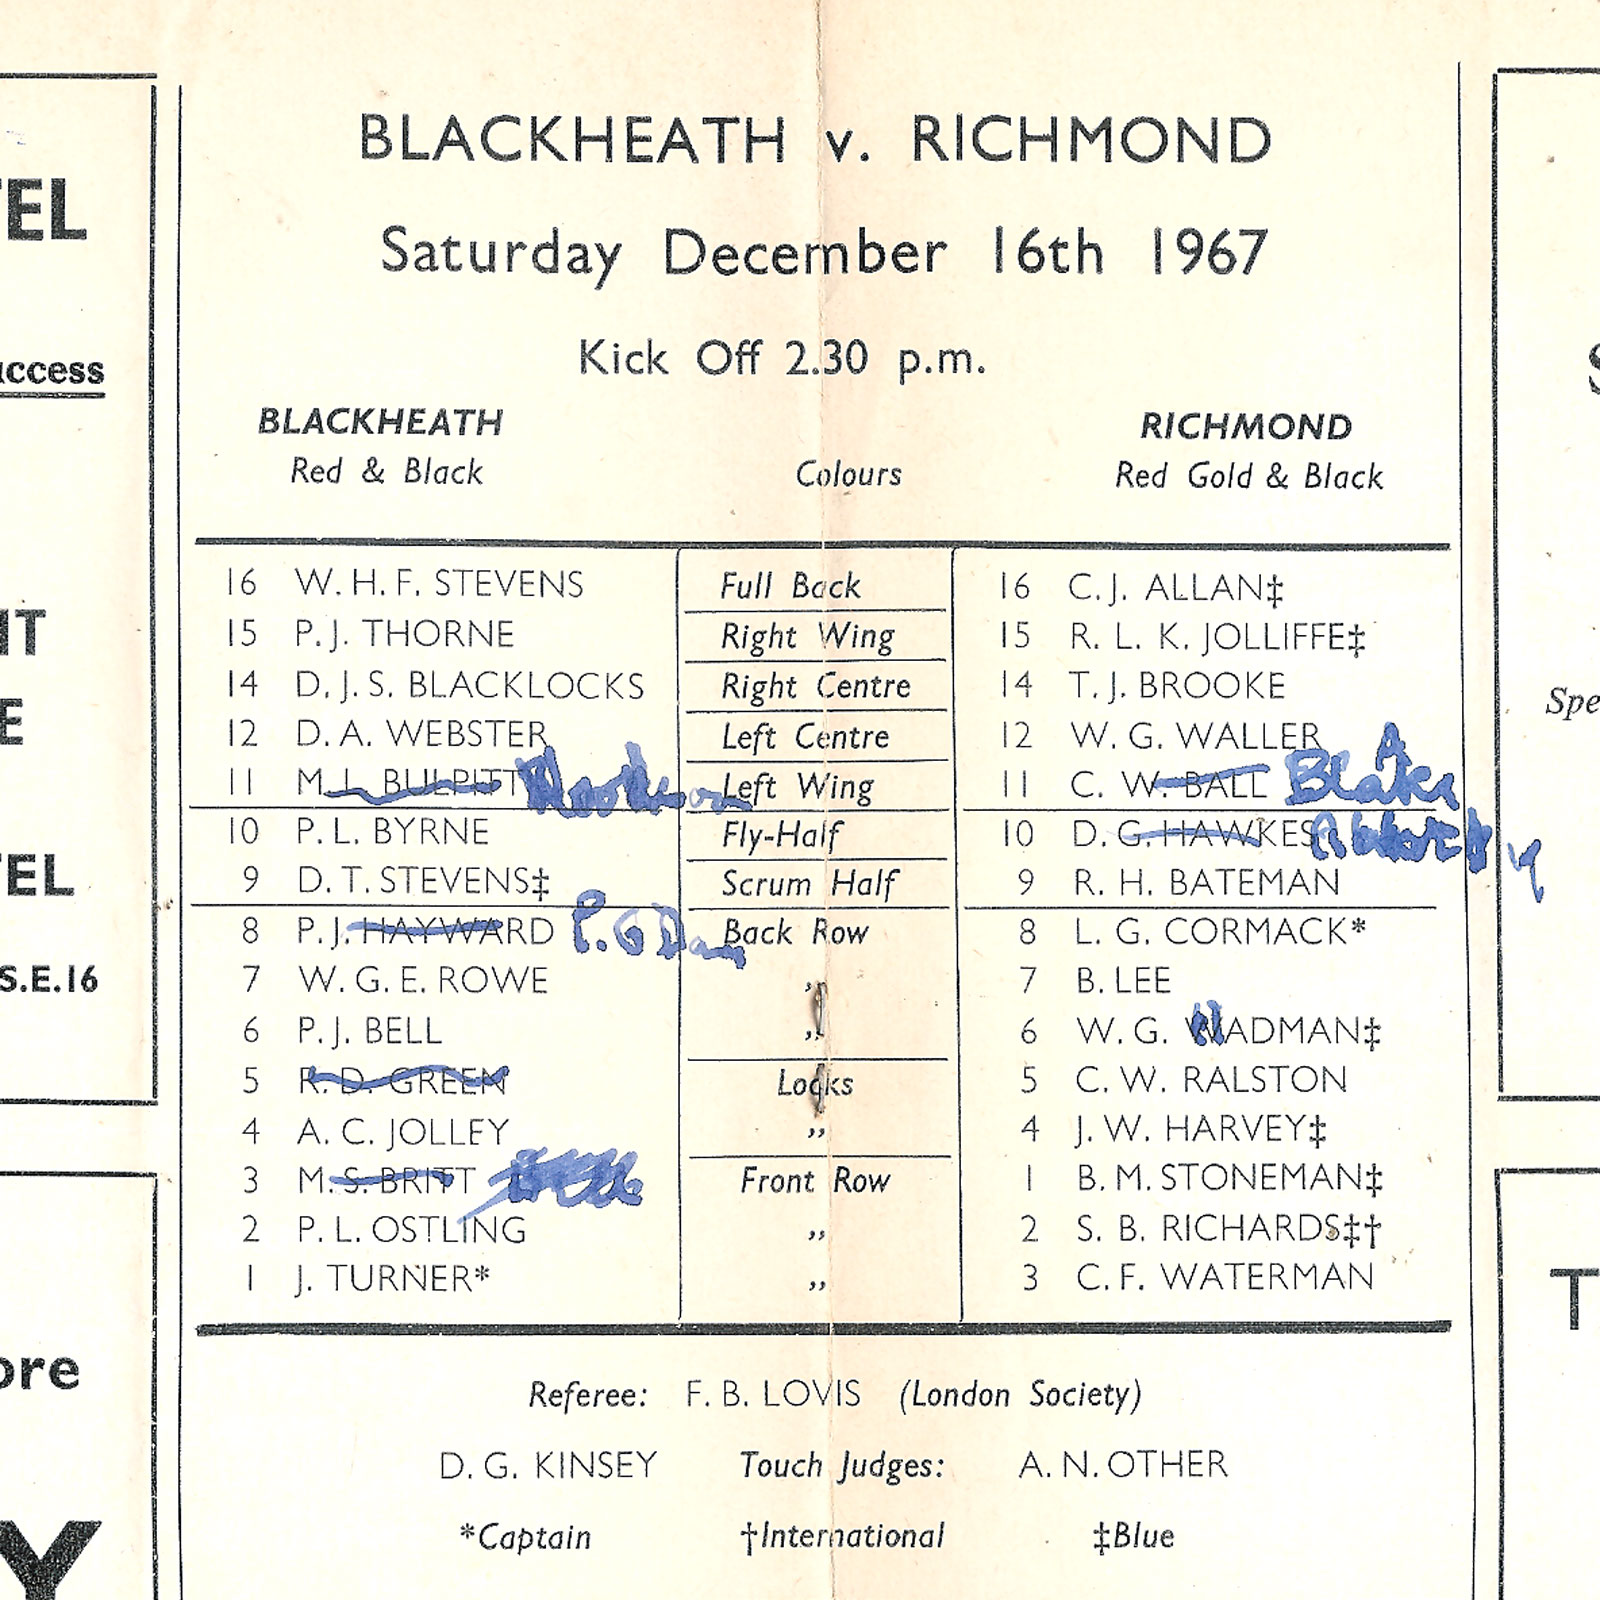 BLACKHEATH v. RICHMOND
Saturday December 16th 1967
Kick Off 2.30 p.m.
BLACKHEATH RICHMOND
Red & Black Colours Red Gold & Black
16 W. H. F. STEVENS Full Back 16 C. J. ALLAN‡
15 P. J. THORNE Right Wing 15 R. L. K. JOLLIFFE‡
14 D. J. S. BLACKLOCKS Right Centre 14 T. J. BROOKE
12 D. A. WEBSTER Left Centre 12 W. G. WALLER
11 M. L. BULPITT Left Wing 11 C. W. BALL Blake
10 P. L. BYRNE Fly-Half 10 D. G. HAWKES
9 D. T. STEVENS‡ Scrum Half 9 R. H. BATEMAN
8 P. J. HAYWARD P. G Back Row 8 L. G. CORMACK*
7 W. G. E. ROWE ,, 7 B. LEE
6 P. J. BELL ,, 6 W. G. WADMAN‡
5 R. D. GREEN Locks 5 C. W. RALSTON
4 A. C. JOLLEY ,, 4 J. W. HARVEY‡
3 M. S. BRITT Front Row 1 B. M. STONEMAN‡
2 P. L. OSTLING ,, 2 S. B. RICHARDS‡†
1 J. TURNER* ,, 3 C. F. WATERMAN
Referee: F. B. LOVIS (London Society)
D. G. KINSEY Touch Judges: A. N. OTHER
*Captain †International ‡Blue
S.E.16